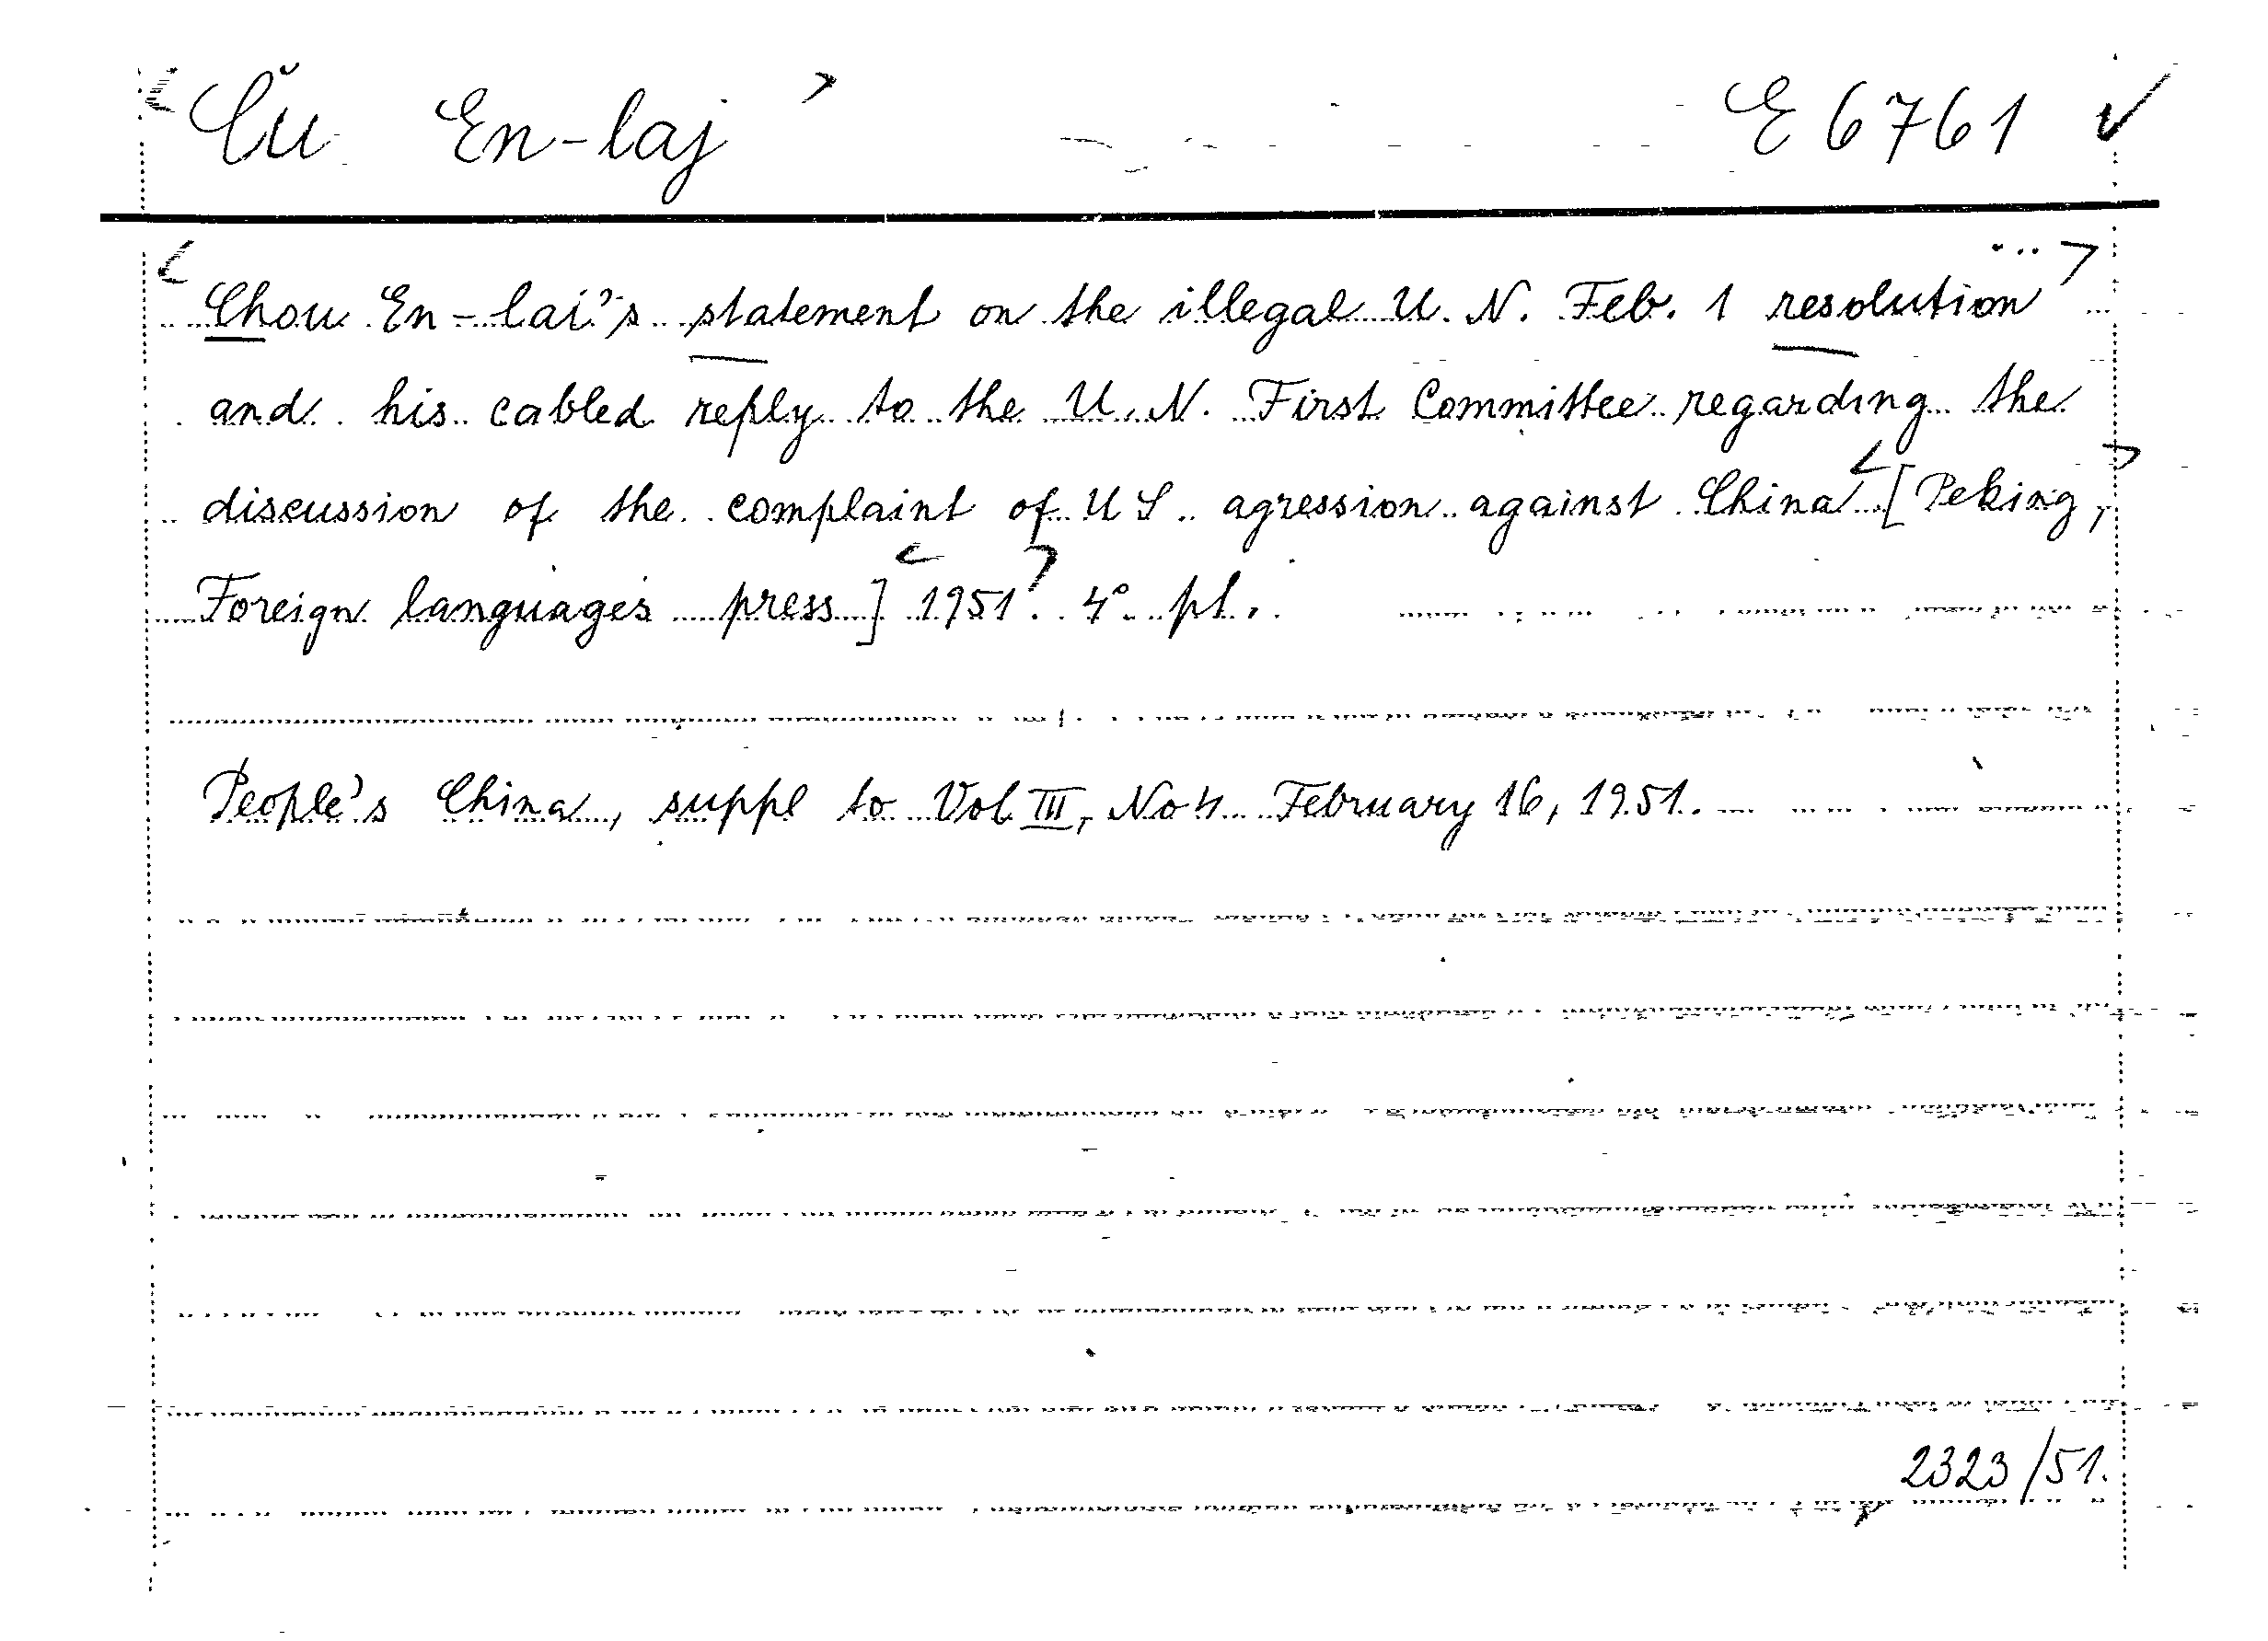 Ču En-laj E 6761 ✓
Chou En-lai's statement on the illegal U. N. Feb. 1 resolution ...
and his cabled reply to the U. N. First Committee regarding the
discussion of the complaint of U S agression against China [Peking,
Foreign languages press] 1951. 4° pl.
People's China, suppl to Vol III, No 4 February 16, 1951.
2323/51.